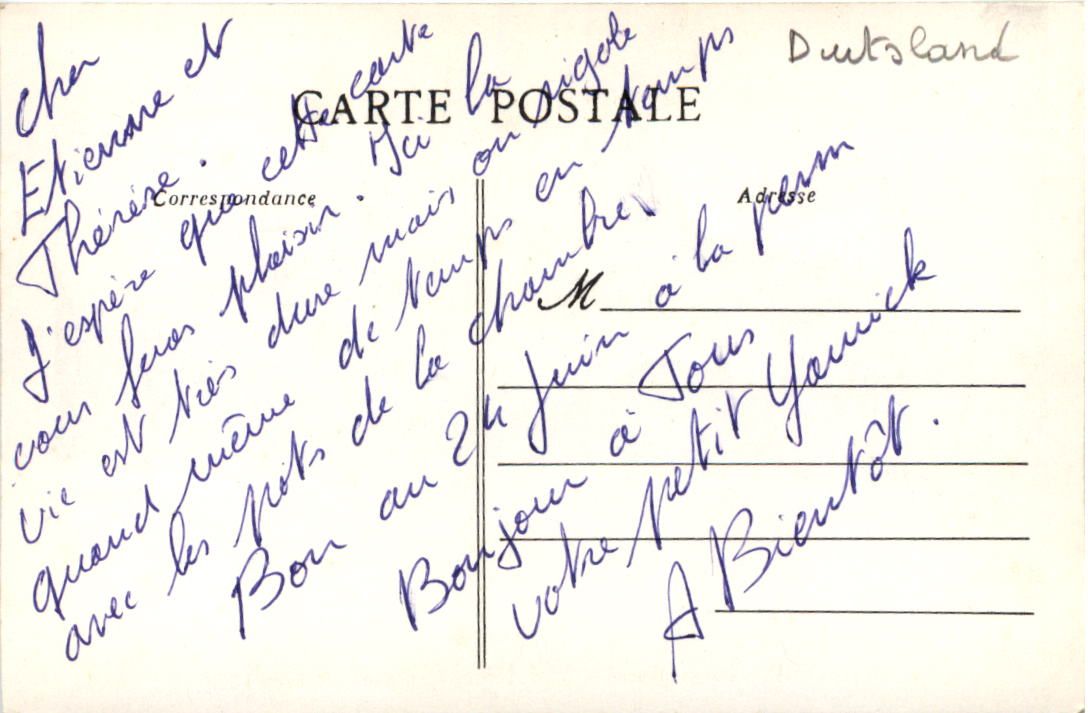 Duitsland
CARTE POSTALE
Correspondance
Adresse
M
Cher
Etienne et
Thérèse.
J'espère que cette carte
vous feras plaisir. Ici la
vie est très dure mais on rigole
quand même de temps en temps
avec les pots de la chambre
Bon au 24 Juin à la perm
Bonjour à Tous
votre petit Yannick
A Bientôt.